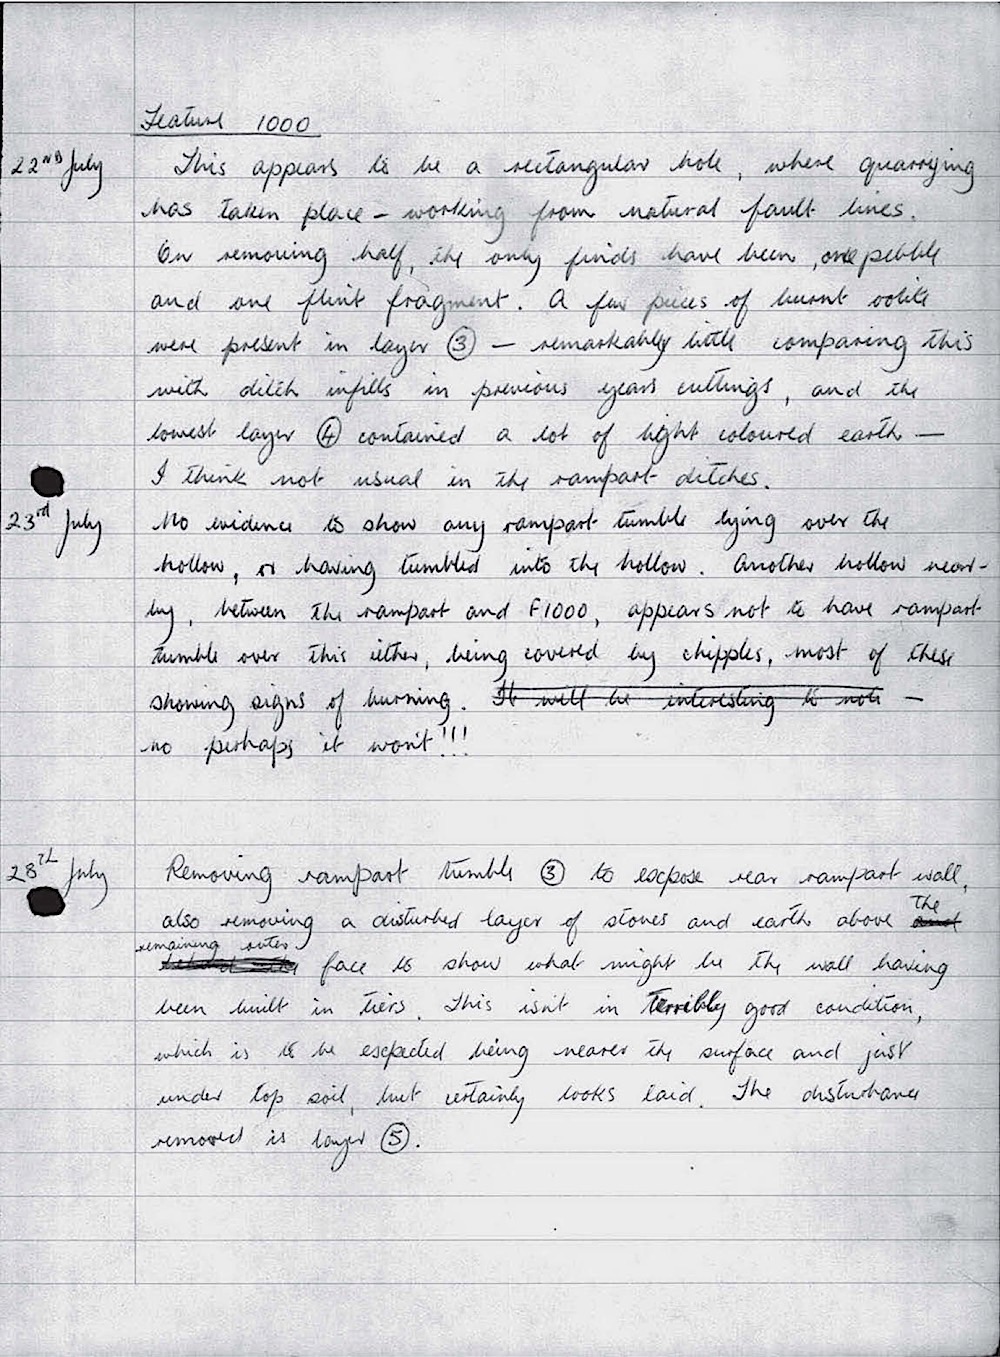 Feature 1000
22ND July This appears to be a rectangular hole, where quarrying
has taken place - working from natural fault lines.
On removing half, the only finds have been, one pebble
and one flint fragment. A few pieces of burnt oolite
were present in layer ③ - remarkably little comparing this
with ditch infills in previous years cuttings, and the
lowest layer ④ contained a lot of light coloured earth -
I think not usual in the rampart ditches.
23rd July No evidence to show any rampart tumble lying over the
hollow, or having tumbled into the hollow. Another hollow near-
by, between the rampart and F1000, appears not to have rampart
tumble over this either, being covered by chipples, most of these
showing signs of burning. It will be interesting to note -
no perhaps it won't!!!
28TH July Removing rampart tumble ③ to expose rear rampart wall,
also removing a disturbed layer of stones and earth above the
remaining outer face to show what might be the wall having
been built in tiers. This isn't in terribly good condition,
which is to be expected being nearer the surface and just
under top soil, but certainly looks laid. The disturbance
removed is layer ⑤.